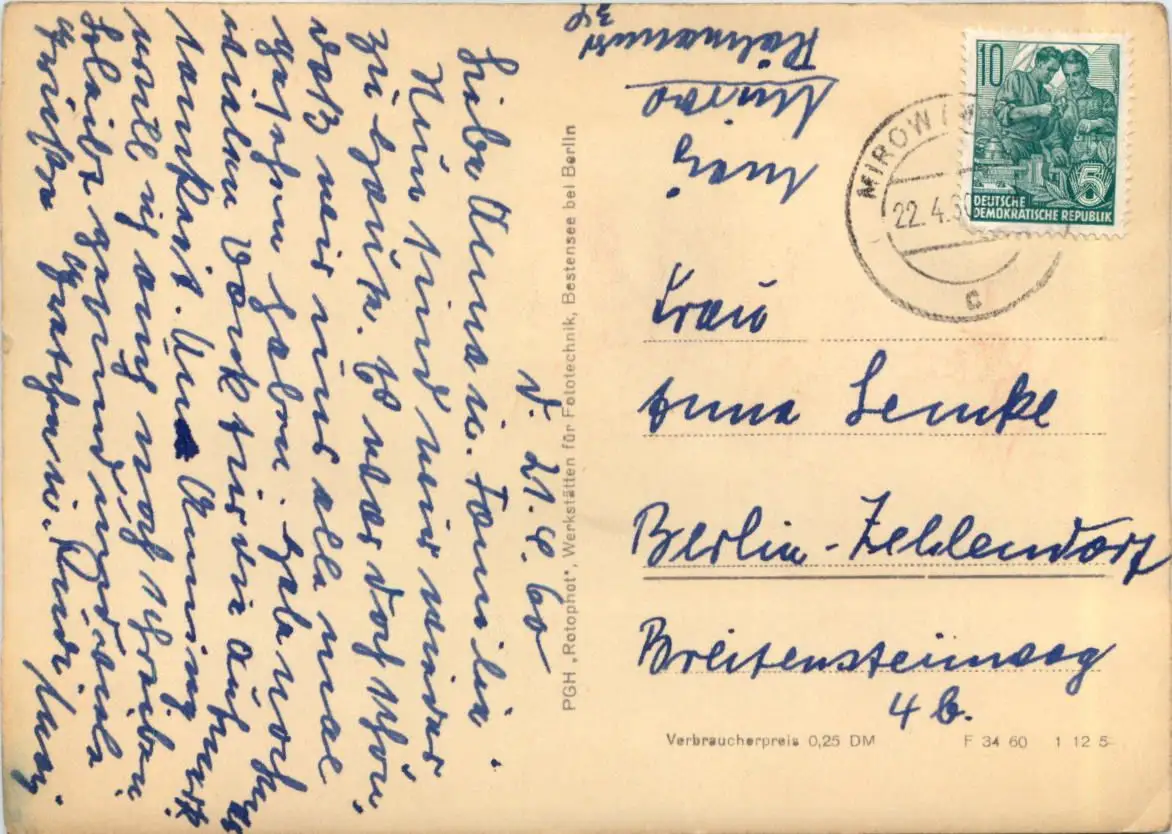 d. 21.4.60
Liebe Anna u. Familie.
Nun sind wir wieder
zu Hause. Es war doch schön,
daß wir uns alle mal
gesehen haben. Habe noch
vielen Dank für die
Und
will ich auch noch schreiben
bleibt gesund und
Grüße u.
PGH „Rotophot", Werkstätten für Fototechnik, Bestensee bei Berlin
Mirow
MIROW
22.4.60
C
10
5
DEUTSCHE
DEMOKRATISCHE REPUBLIK
Frau
Anna Lemke
Berlin-Zehlendorf
Breitensteinweg
4 b.
Verbraucherpreis 0,25 DM
F 34 60 1 12 5